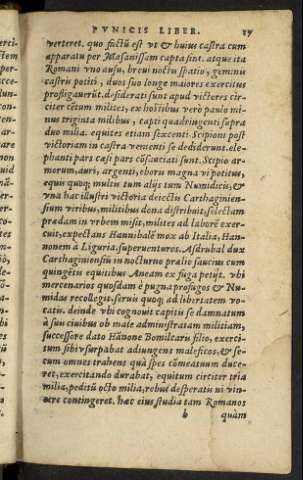 PVNICIS LIBER. 17
verteret. quo factũ est vt & huius castra cum
apparatu per Masanissam capta sint. atque ita
Romani vno ausu, breui noctis spatio, geminis
castris potiti, duos suo longe maiores exercitus
profligauerũt. desiderati sunt apud victores cir-
citer cẽtum milites, ex hostibus verò paulo mi-
nus triginta milibus, capti quadringenti supra
duo milia. equites etiam sexcenti. Scipioni post
victoriam in castra venienti se dediderunt. ele-
phanti pars cæsi pars cõsauciati sunt. Scipio ar-
morum, auri, argenti, eboru magna vi potitus,
equis quoq; multis tum alijs tum Numidicis, &
vna hac illustri victoria deiectis Carthaginien-
sium viribus, militibus dona distribuit. selectam
prædam in vrbem misit, milites ad laborẽ exer-
cuit, expectans Hannibalẽ mox ab Italia, Han-
nonem à Liguria superuenturos. Asdrubal dux
Carthaginiensiũ in nocturno prælio saucius cum
quingẽtis equitibus Ancam ex fuga petijt. vbi
mercenarios quosdam è pugna profugos & Nu-
midas recollegit. seruis quoq; ad libertatem vo-
catis. deinde vbi cognouit capitis se damnatum
à suis ciuibus ob male administratam militiam,
successore dato Hãnone Bomilcaris filio, exerci-
tum sibi vsurpabat adiungens maleficos, & se-
cum omnes trahens quà spes cõmeatuum duce-
ret, exercitando durabat, equitum circiter tria
milia, peditũ octo milia, robus desperatis ni vin-
cere contingeret. hæc eius studia tam Romanos
b quàm